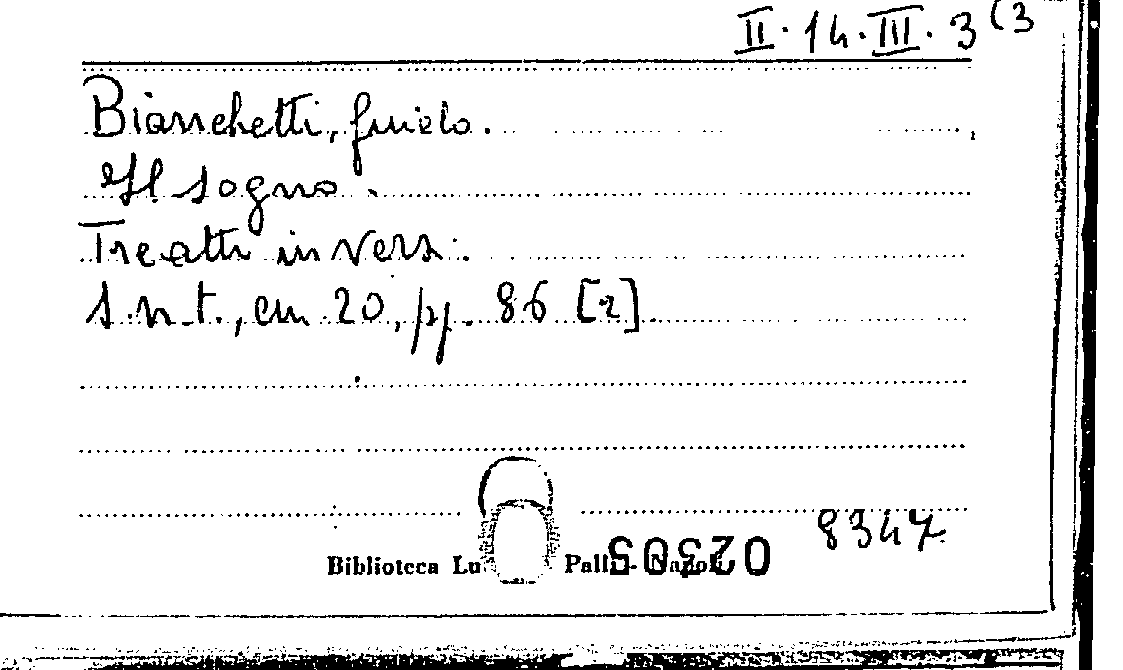 II. 14. III. 3 (3
Bianchetti, Guido.
Il sogno.
Tre atti in versi.
s.n.t., cm 20, pp. 86 [2].
8347
Biblioteca Lu Pall - Napoli